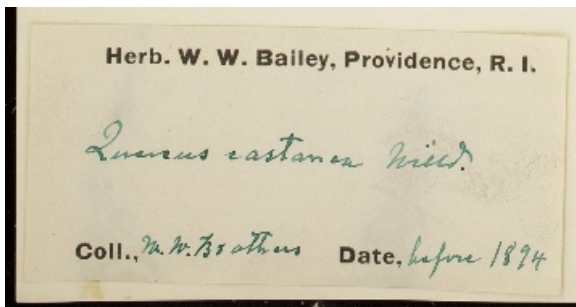 Herb. W. W. Bailey, Providence, R. I.
Quercus castanea Willd.
Coll., W. W. Brothers Date, before 1894